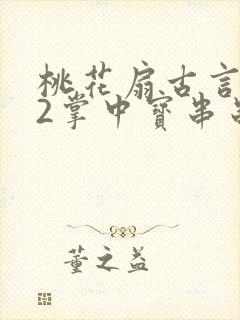 桃花扇古言
2掌中寳串
董之益